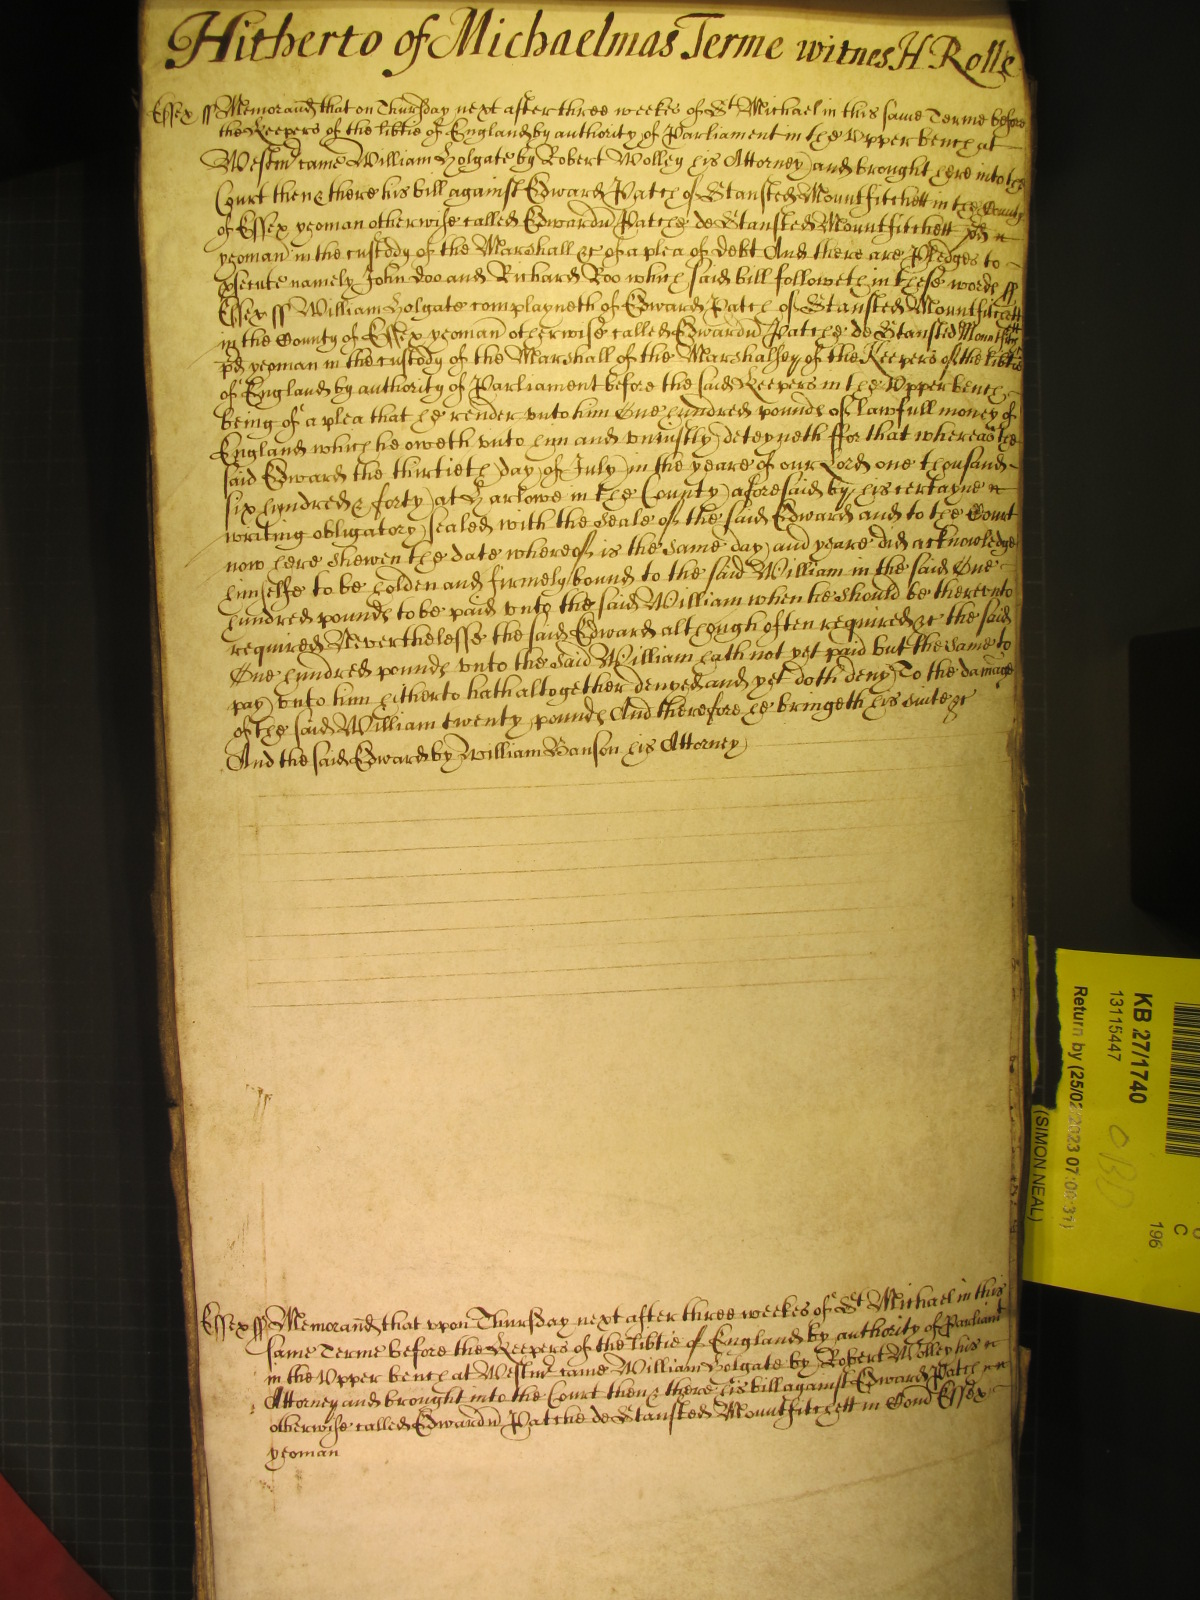 Hitherto of Michaelmas Terme witnes H Rolle
Essex ss Memorand that on Thursday next after three weekes of St Michael in this same Terme before
the Keepers of the libtie of England by authority of Parliament in the Vpper bench at
Westmr came William Holgate by Robert Wolley his Attorney and brought here into the
Court then & there his bill against Edward Patch of Stansted Mountfitchett in the County
of Essex yeoman otherwise called Edwardu Patche de Stansted Mountfitchett
yeoman in the custody of the Marshall &c of a plea of debt And there are Pledges to
psecute namely John Doo and Richard Roo which said bill followeth in these words ss
Essex ss William Holgate complayneth of Edward Patch of Stansted Mountfitchett
in the County of Essex yeoman otherwise called Edwardu Patche de Stansted Mountfitchett
pd yeoman in the custody of the Marshall of the Marshalsey of the Keepers of the libtie
of England by authority of Parliament before the said Keepers in the Vpper bench
being of a plea that he render vnto him One hundred pounds of lawfull money of
England which he oweth vnto him and vniustly deteyneth ffor that whereas the
said Edward the thirtieth day of July in the yeare of our Lord one thousand
six hundred & forty at Harlowe in the County aforesaid by his certayne
writing obligatory sealed with the Seale of the said Edward and to the Court
now here shewen the date whereof is the same day and yeare did acknowledge
himselfe to be holden and firmely bound to the said William in the said One
hundred pounds to be paid vnto the said William when he should be therevnto
required Neverthelesse the said Edward although often required &c the said
One hundred pounds vnto the said William hath not yet paid but the same to
pay vnto him hitherto hath altogether denyed and yet doth deny To the damage
of the said William twenty pounds And therefore he bringeth his suite &c
And the said Edward by William Banson his Attorney
Essex ss Memorand that vpon Thursday next after three weekes of St Michael in this
same Terme before the Keepers of the libtie of England by authority of Parliamt
in the Vpper bench at Westmr came William Holgate by Robert Wolley his
Attorney and brought into the Court then & there his bill against Edward Patch
otherwise called Edwardu Patche de Stansted Mountfitchett in Com Essex
yeoman
KB 27/1740
13115447
Return by (25/02/2023 07:00:31)
(SIMON NEAL)
196
C